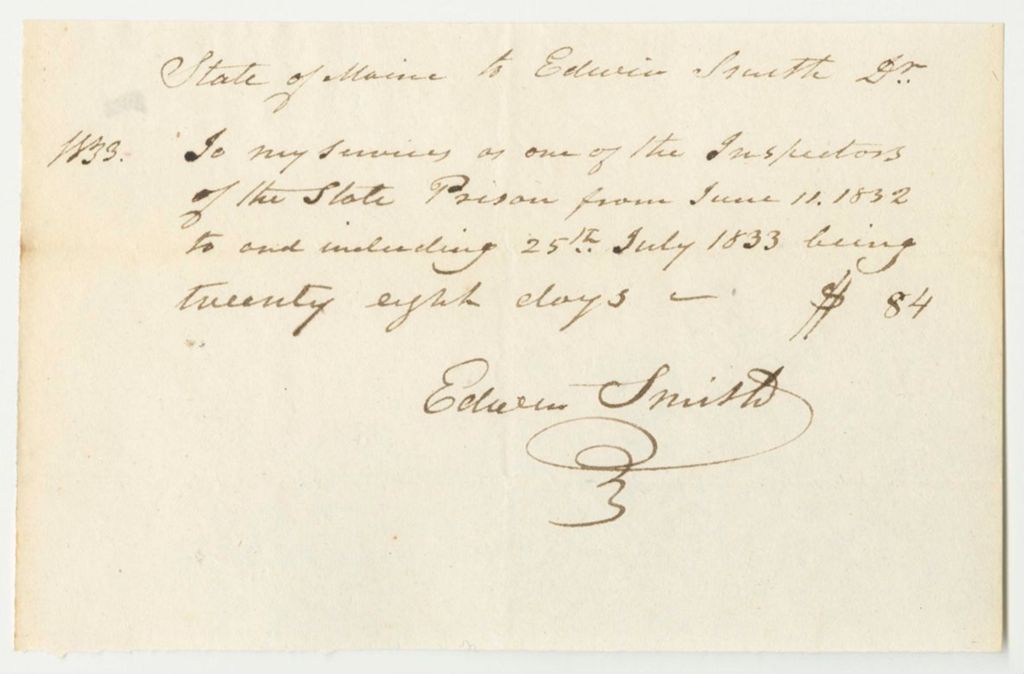 State of Maine to Edwin Smith Dr.
1833. To my services as one of the Inspectors
of the State Prison from June 11. 1832
to and including 25th. July 1833 being
twenty eight days — $ 84
Edwin Smith